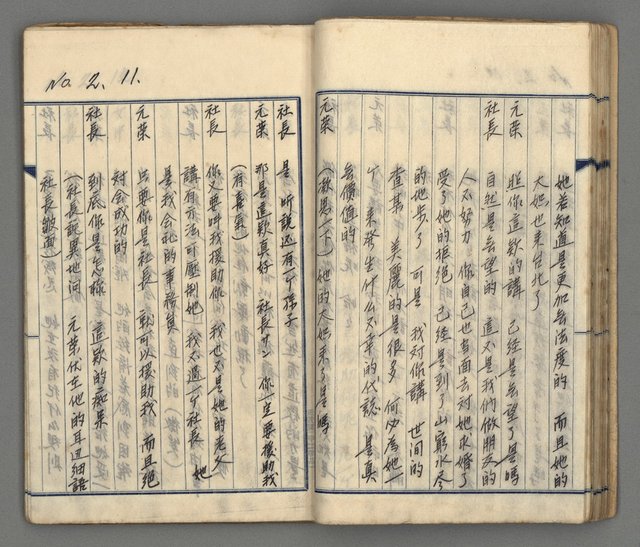 她若知道是更加無法度的 而且她的
大媳也來告死了
元荣 照你這欵的講 已經是無望了是嗎
社長 自然是無望的 這不是我們做朋友的
人不努力 你自己也有面去对她求婚了
受了她的拒絕 已經是到了山窮水尽
的地步了 可是 我对你講 世间的
查某 美麗的是很多 何必為她一
个 來發生什么不幸的代誌 是真
無價值的
元荣 (激思一下) 她的大媳來了是嗎
No. 2. 11.
社長 是 听說还有一个孫子
元荣 那是這欵真好 社長サン 你一定要援助我
(有喜氣)
社長 你又要叫我援助你 我也不是她的老父
講有方法可壓制她 我不过一个社長 她
是我会社的事務員
元荣 只要你是社長 就可以援助我 而且絕
对会成功的
社長 到底你是怎樣 這欵的痴呆
(社長說異地问 元荣伏在他的耳边細語
社長皺面)